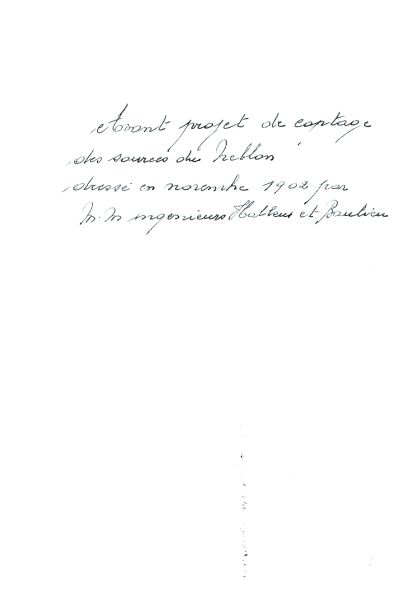 Avant projet de captage
des sources du Néblon
dressé en novembre 1902 par
M.M ingenieurs et